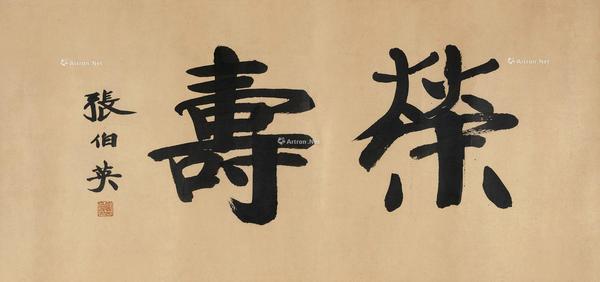 榮壽
張伯英
Artron.Net
Artron.Net
Artron.Net